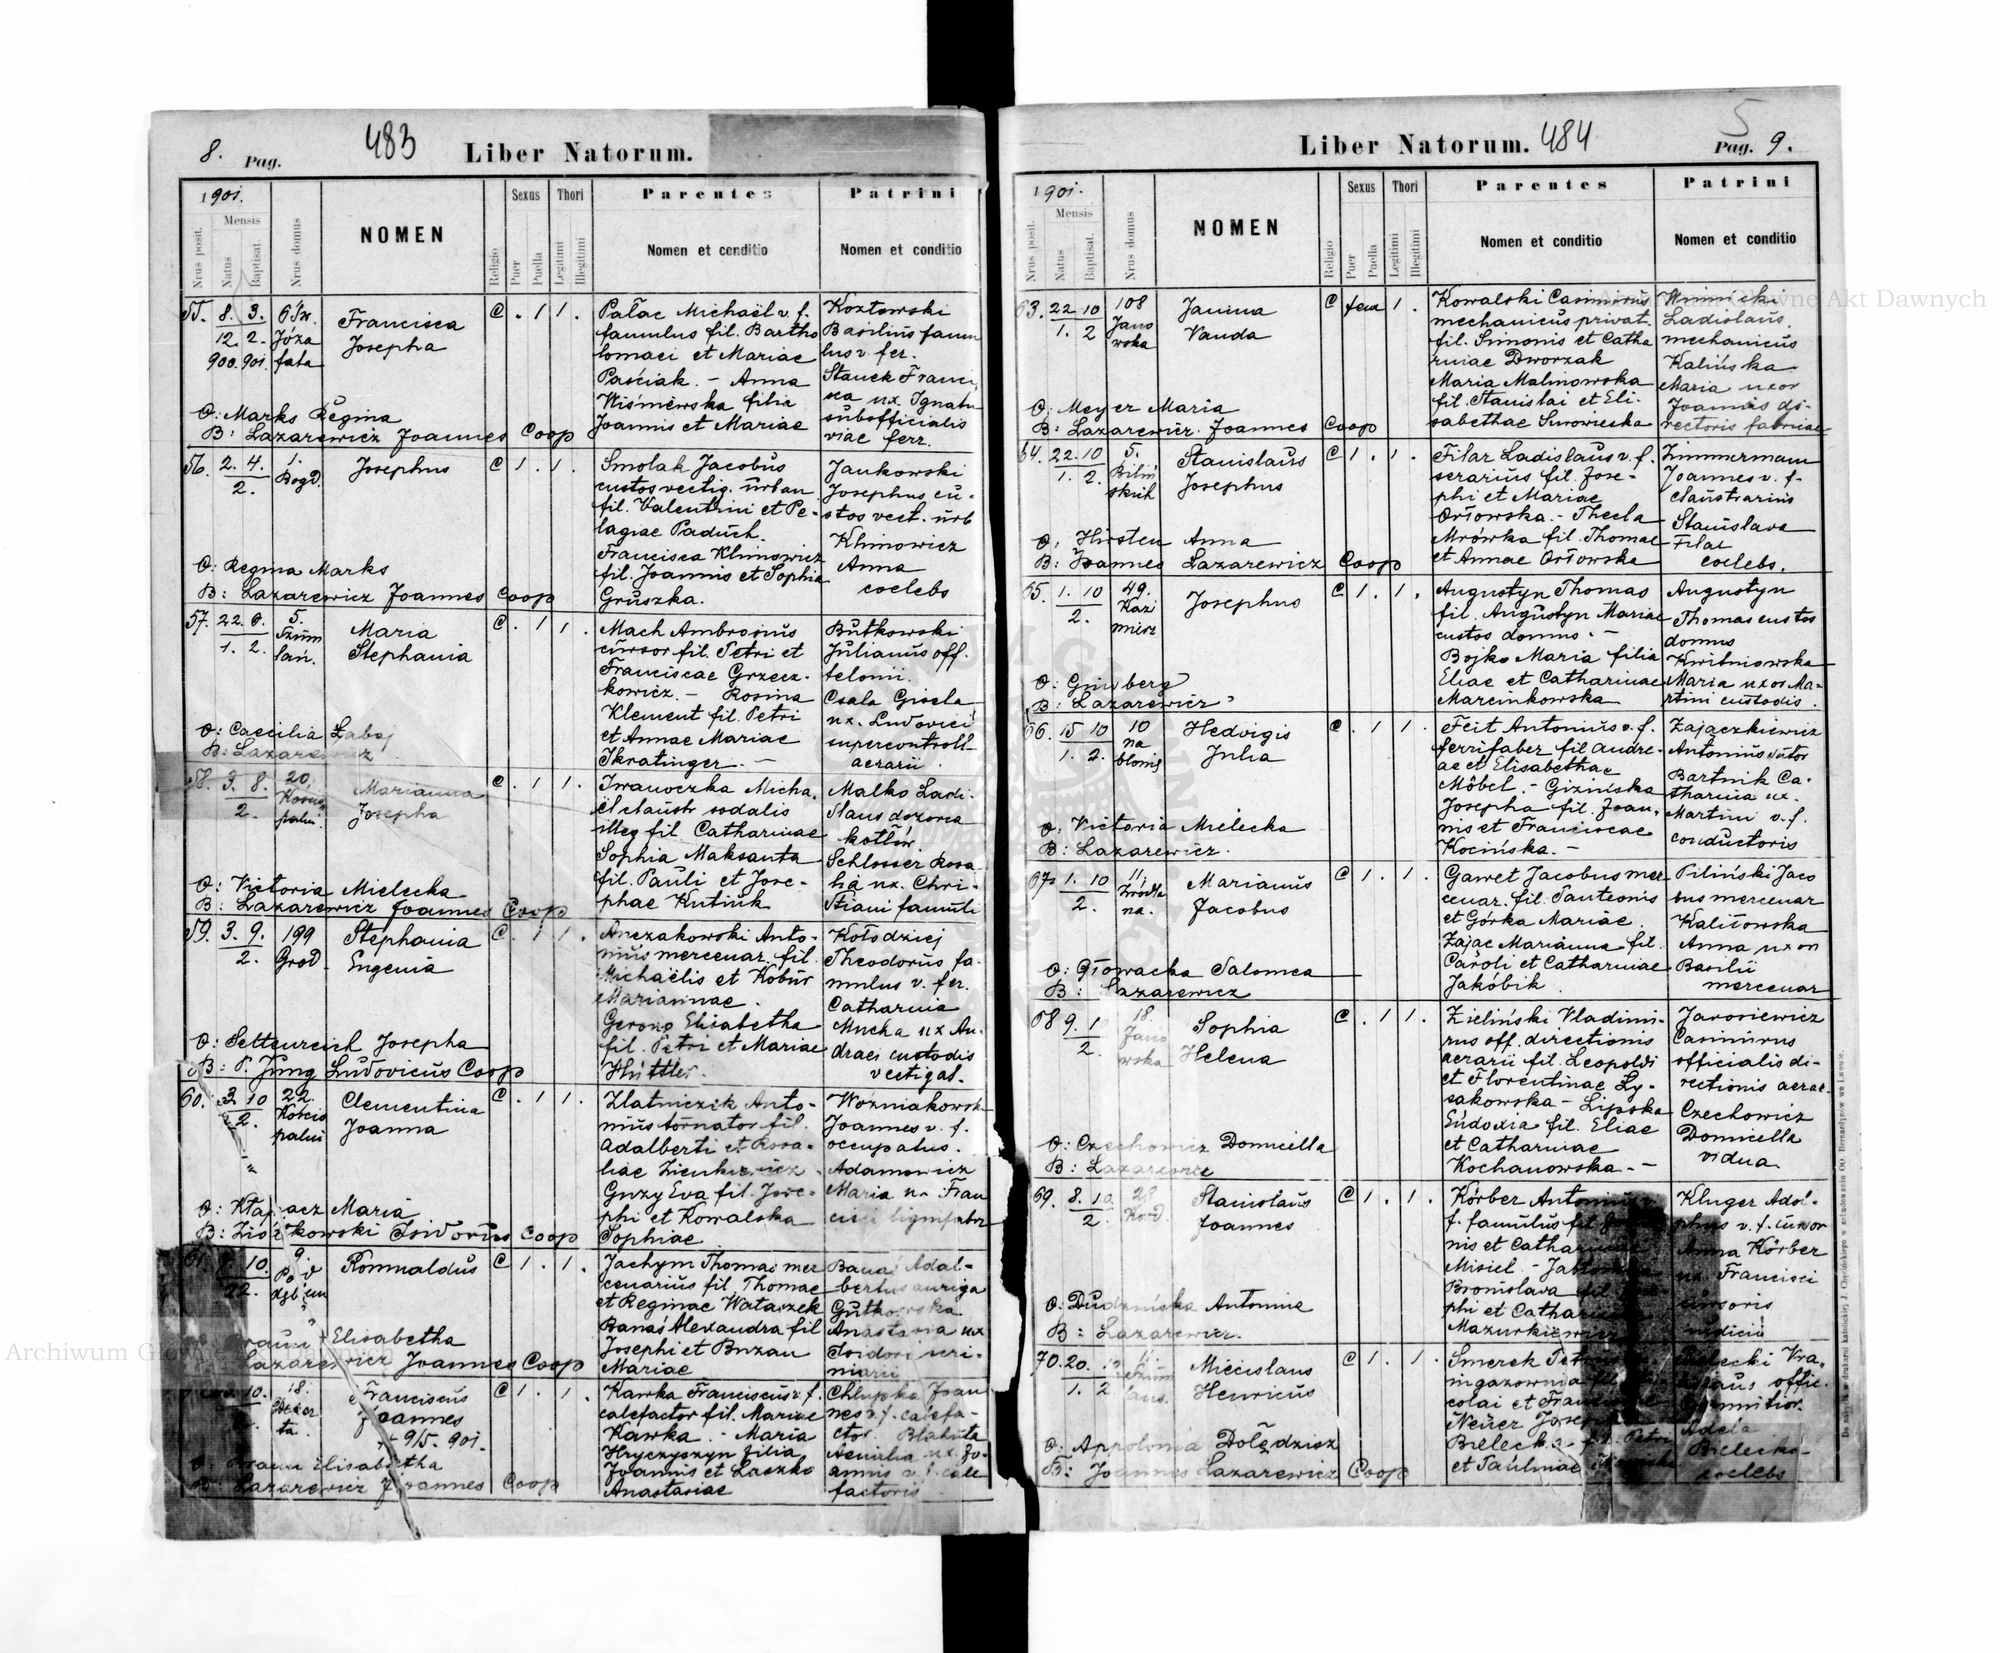 8. Pag. 483 Liber Natorum.
1901.
Nrus posit.
Mensis
Natus
Baptisat.
Nrus domus
NOMEN
Religio
Sexus
Puer
Puella
Thori
Legitimi
Illegitimi
Parentes
Nomen et conditio
Patrini
Nomen et conditio
55. 8. 3.
12. 2. Józa
900. 901. fata
Francisca
Josepha
C . 1 1 .
Pałac Michaël v. f.
famulus fil. Bartho
lomaei et Mariae
Paściak. – Anna
Wiśniewska filia
Joannis et Mariae
Kozłowski
Basilius famu
lus v. fer.
Stanek Franci
sca ux. Ignatii
subofficialis
viae ferr.
O: Marks Regina
B: Lazarewicz Joannes Coop
56. 2. 4. 1.
2. Bogd.
Josephus
C 1 . 1 .
Smolak Jacobus
custos vectig. urban
fil. Valentini et Pe-
lagiae Paduch.
Francisca Klimowicz
fil. Joannis et Sophia
Gruszka.
Jankowski
Josephus cu-
stos vect. urb
Klimowicz
Anna
coelebs
O: Regina Marks
B: Lazarewicz Joannes Coop
57. 22. 9. 5.
1. 2.
Maria
Stephania
C . 1 1 .
Mach Ambrosius
cursor fil. Petri et
Franciscae Grzecz-
kowicz. – Rosina
Klement fil. Petri
et Annae Mariae
Skratinger. –
Butkowski
Julianus off.
telonii.
Csala Gisela
ux. Ludovici
supercontroll
aerarii.
O: Caecilia Zabaj
B: Lazarewicz
58. 3. 8. 20.
2.
Marianna
Josepha
C . 1 1 .
Iwaneczka Micha.
ël claustr sodalis
illeg fil. Catharinae
Sophia Maksanta
fil. Pauli et Jose-
phae Kutiuk
Malko Ladi-
slaus dozorca
kotłów.
Schlosser Rosa
lia ux. Chri-
stiani famuli
O: Victoria Mielecka
B: Lazarewicz Joannes Coop
59. 3. 9. 199
2. Grod
Stephania
Eugenia
C . 1 1 .
Anczakowski Anto-
nius mercenar. fil.
Michaëlis et Kobur
Mariannae.
Elisabetha
fil. Petri et Mariae
Hüttler.
Kołodziej
Theodorus fa-
mulus v. fer.
Catharina
Mucha ux An-
draei custodis
vectigal.
O: Settenreich Josepha
B: P. Jung Ludovicus Coop
60. 3. 10 22.
2.
Clementina
Joanna
C . 1 1 .
Zlatniczek Anto-
nius tornator fil.
Adalberti et Rosa-
liae Zienkiewicz.
Guzy Eva fil. Jose-
phi et Kowalska
Sophiae
Woźniakowski
Joannes v. f.
occupatus.
Adamowicz
Maria ux Fran
cisci lignifabri
O: Maria
B: Isidorus Coop
61. 10. 9.
Romualdus
C 1 . 1 .
Jachym Thomas mer
cenarius fil. Thomae
et Reginae Wataszek
Banaś Alexandra fil
Josephi et Buzau
Mariae
Banaś Adal-
bertus auriga
Gutkowska
Anastasia ux
Isidori
Elisabetha
Lazarewicz Joannes Coop
10. 18.
Franciscus
Joannes
+ 9/5. 901.
C 1 . 1 .
Kawka Franciscus v. f.
calefactor fil. Mariae
Kawka. – Maria
Hryczyszyn filia
Joannis et Laszko
Anastasiae
Chlupka Joan
nes v. f. calefa-
ctor. Blahuta
Aemilia ux. Jo-
annis v. f. cale
factoris
O: Braun Elisabetha
B: Lazarewicz Joannes Coop
Liber Natorum. 484 5 Pag. 9.
1901.
Nrus posit.
Mensis
Natus
Baptisat.
Nrus domus
NOMEN
Religio
Sexus
Puer
Puella
Thori
Legitimi
Illegitimi
Parentes
Nomen et conditio
Patrini
Nomen et conditio
63. 22 10 108
1. 2 Jano
wska
Janina
Vanda
C 1 .
Kowalski Casimirus
mechanicus privat.
fil. Simonis et Catha
rinae Dworzak
Maria Malinowska
fil. Stanislai et Eli-
sabethae Surowiecka
Ladislaus.
mechanicus
Kalińska
Maria uxor
Joannis di-
rectoris fabricae
O: Meyer Maria
B: Lazarewicz. Joannes Coop
64. 22. 10 5.
1. 2. Biliń
skich
Stanislaus
Josephus
C 1 . 1 .
Filar Ladislaus v. f.
serarius fil. Jose-
phi et Mariae
Orłowska. – Thecla
Mrówka fil. Thomae
et Annae Orłowska
Zimmermann
Joannes v. f.
claustrarius
Stanislava
Filar
coelebs.
O: Hirsten Anna
B: Joannes Lazarewicz Coop
65. 1. 10 49.
2. Kazi
mierz
Josephus
C 1 . 1 .
Augustyn Thomas
fil. Augustyn Mariae
custos domus. –
Bojko Maria filia
Eliae et Catharinae
Marcinkowska
Augustyn
Thomas custos
domus
Kwitniowska
Maria uxor Ma-
rtini custodis.
O: Ginsberg
B: Lazarewicz
66. 15 10 10
1. 2. na
błonie
Hedvigis
Julia
C . 1 1 .
Feit Antonius v. f.
ferrifaber fil Andre-
ae et Elisabethae
Möbel. – Gizińska
Josepha fil. Joan-
nis et Franciscae
Kocińska. –
Zajaczkiewicz
Antonius sutor
Bartnik Ca-
tharina ux.
Martini v. f.
conductoris
O: Victoria Mielecka
B: Lazarewicz.
67. 1. 10 11.
2. Zródla
na.
Marianus
Jacobus
C 1 . 1 .
Gaweł Jacobus mer
cenar. fil. Panteonis
et Górka Mariae.
Zajac Marianna fil.
Caroli et Catharinae
Jakóbik.
Piliński Jaco
bus mercenar
Kalitowska
Anna uxor
Basilii
mercenar
O: Głowacka Salomea
B: Lazarewicz
68 9. 1 18.
2. Jano
wska
Sophia
Helena
C . 1 1 .
Zieliński Vladimi-
rus off. directionis
aerarii fil Leopoldi
et Florentinae Ły-
sakowska – Lipska
Eudoxia fil. Eliae
et Catharinae
Kochanowska. –
Jarosiewicz
Casimirus
officialis di-
rectionis aerar.
Czechowicz
Domicella
vidua.
O: Czechowicz Domicella
B: Lazarewicz
69. 8. 10. 28
2. Kord.
Stanislaus
Joannes
C 1 . 1 .
Körber Antonius v.
f. famulus fil Jo
nis et Catharinae
Misiel. – Jabłońska
Bronislava fil.
phi et Catharinae
Mazurkiewicz
Kluger Adol-
phus v. f. cursor
Anna Körber
ux. Francisci
cursoris
O: Dudzińska Antonia
B: Lazarewicz.
70. 20.
1. 2
Miecislaus
Henricus
C 1 . 1 .
Smerek Petrus
in gazownia
colai et
Neüer Joseph
Bielecka fil. Petri
et Paulinae
Bielecki
offic.
Adela
Bielecka
coelebs
O: Appolonia Dołędzisz
B: Joannes Lazarewicz Coop
Archiwum Główne Akt Dawnych
Archiwum Główne Akt Dawnych